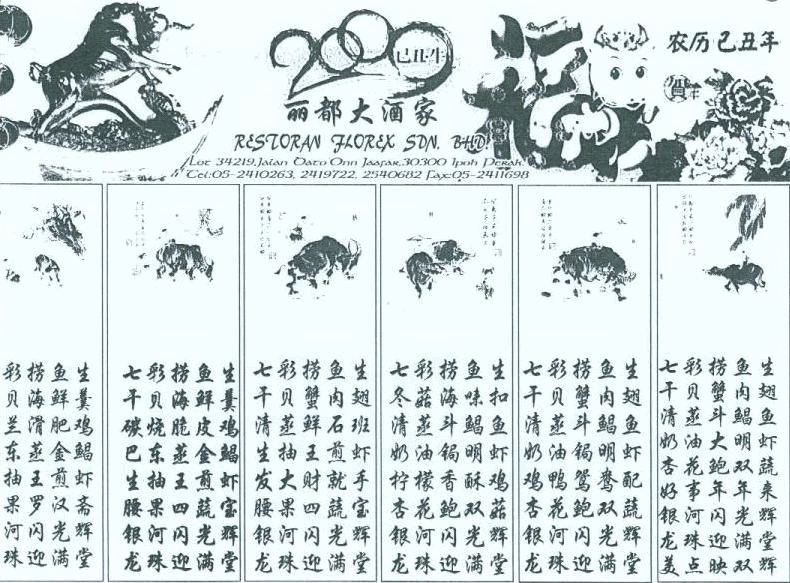 2009
己丑年
农历己丑年
福
賀年
丽都大酒家
RESTORAN FLOREX SDN. BHD.
Lot 34219, Jalan Dato Onn Jaafar, 30300 Ipoh Perak.
Tel:05-2410263, 2419722, 2540682 Fax:05-2411698
彩捞鱼生
贝海鲜羹
兰滑肥鸡
东蒸金鲳
抽王煎虾
果罗汉斋
河闪光辉
珠迎满堂
七彩捞鱼生
干贝海鲜羹
碳烧脆皮鸡
巴东蒸金鲳
生抽王煎虾
腰果四蔬宝
银河闪光辉
龙珠迎满堂
七彩捞鱼生
干贝蟹肉翅
清蒸鲜石班
生抽王煎虾
发大财就手
腰果四蔬宝
银河闪光辉
龙珠迎满堂
七彩捞鱼生
冬菇海味扣
清蒸斗鲳鱼
奶油锔明虾
柠檬香酥鸡
杏花鲍双菇
银河闪光辉
龙珠迎满堂
七彩捞鱼生
干贝蟹肉翅
清蒸斗鲳鱼
奶油锔明虾
鸡鸭鸳鸯配
杏花鲍双蔬
银河闪光辉
龙珠迎满堂
七彩捞鱼生
干贝蟹肉翅
清蒸斗鲳鱼
奶油大明虾
杏花鲍双蔬
好事年年来
银河闪光辉
龙珠迎满堂
美点映双辉